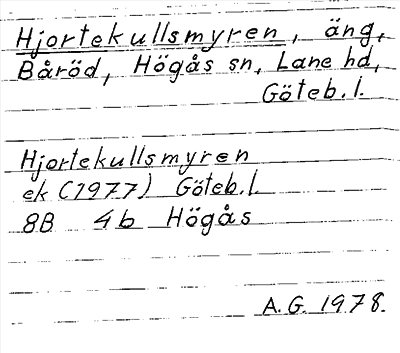 Hjortekullsmyren, äng,
Båröd, Högås sn, Lane hd,
Göteb. l.
Hjortekullsmyren
ek (1977) Göteb. l.
8B 4b Högås
A.G. 1978.